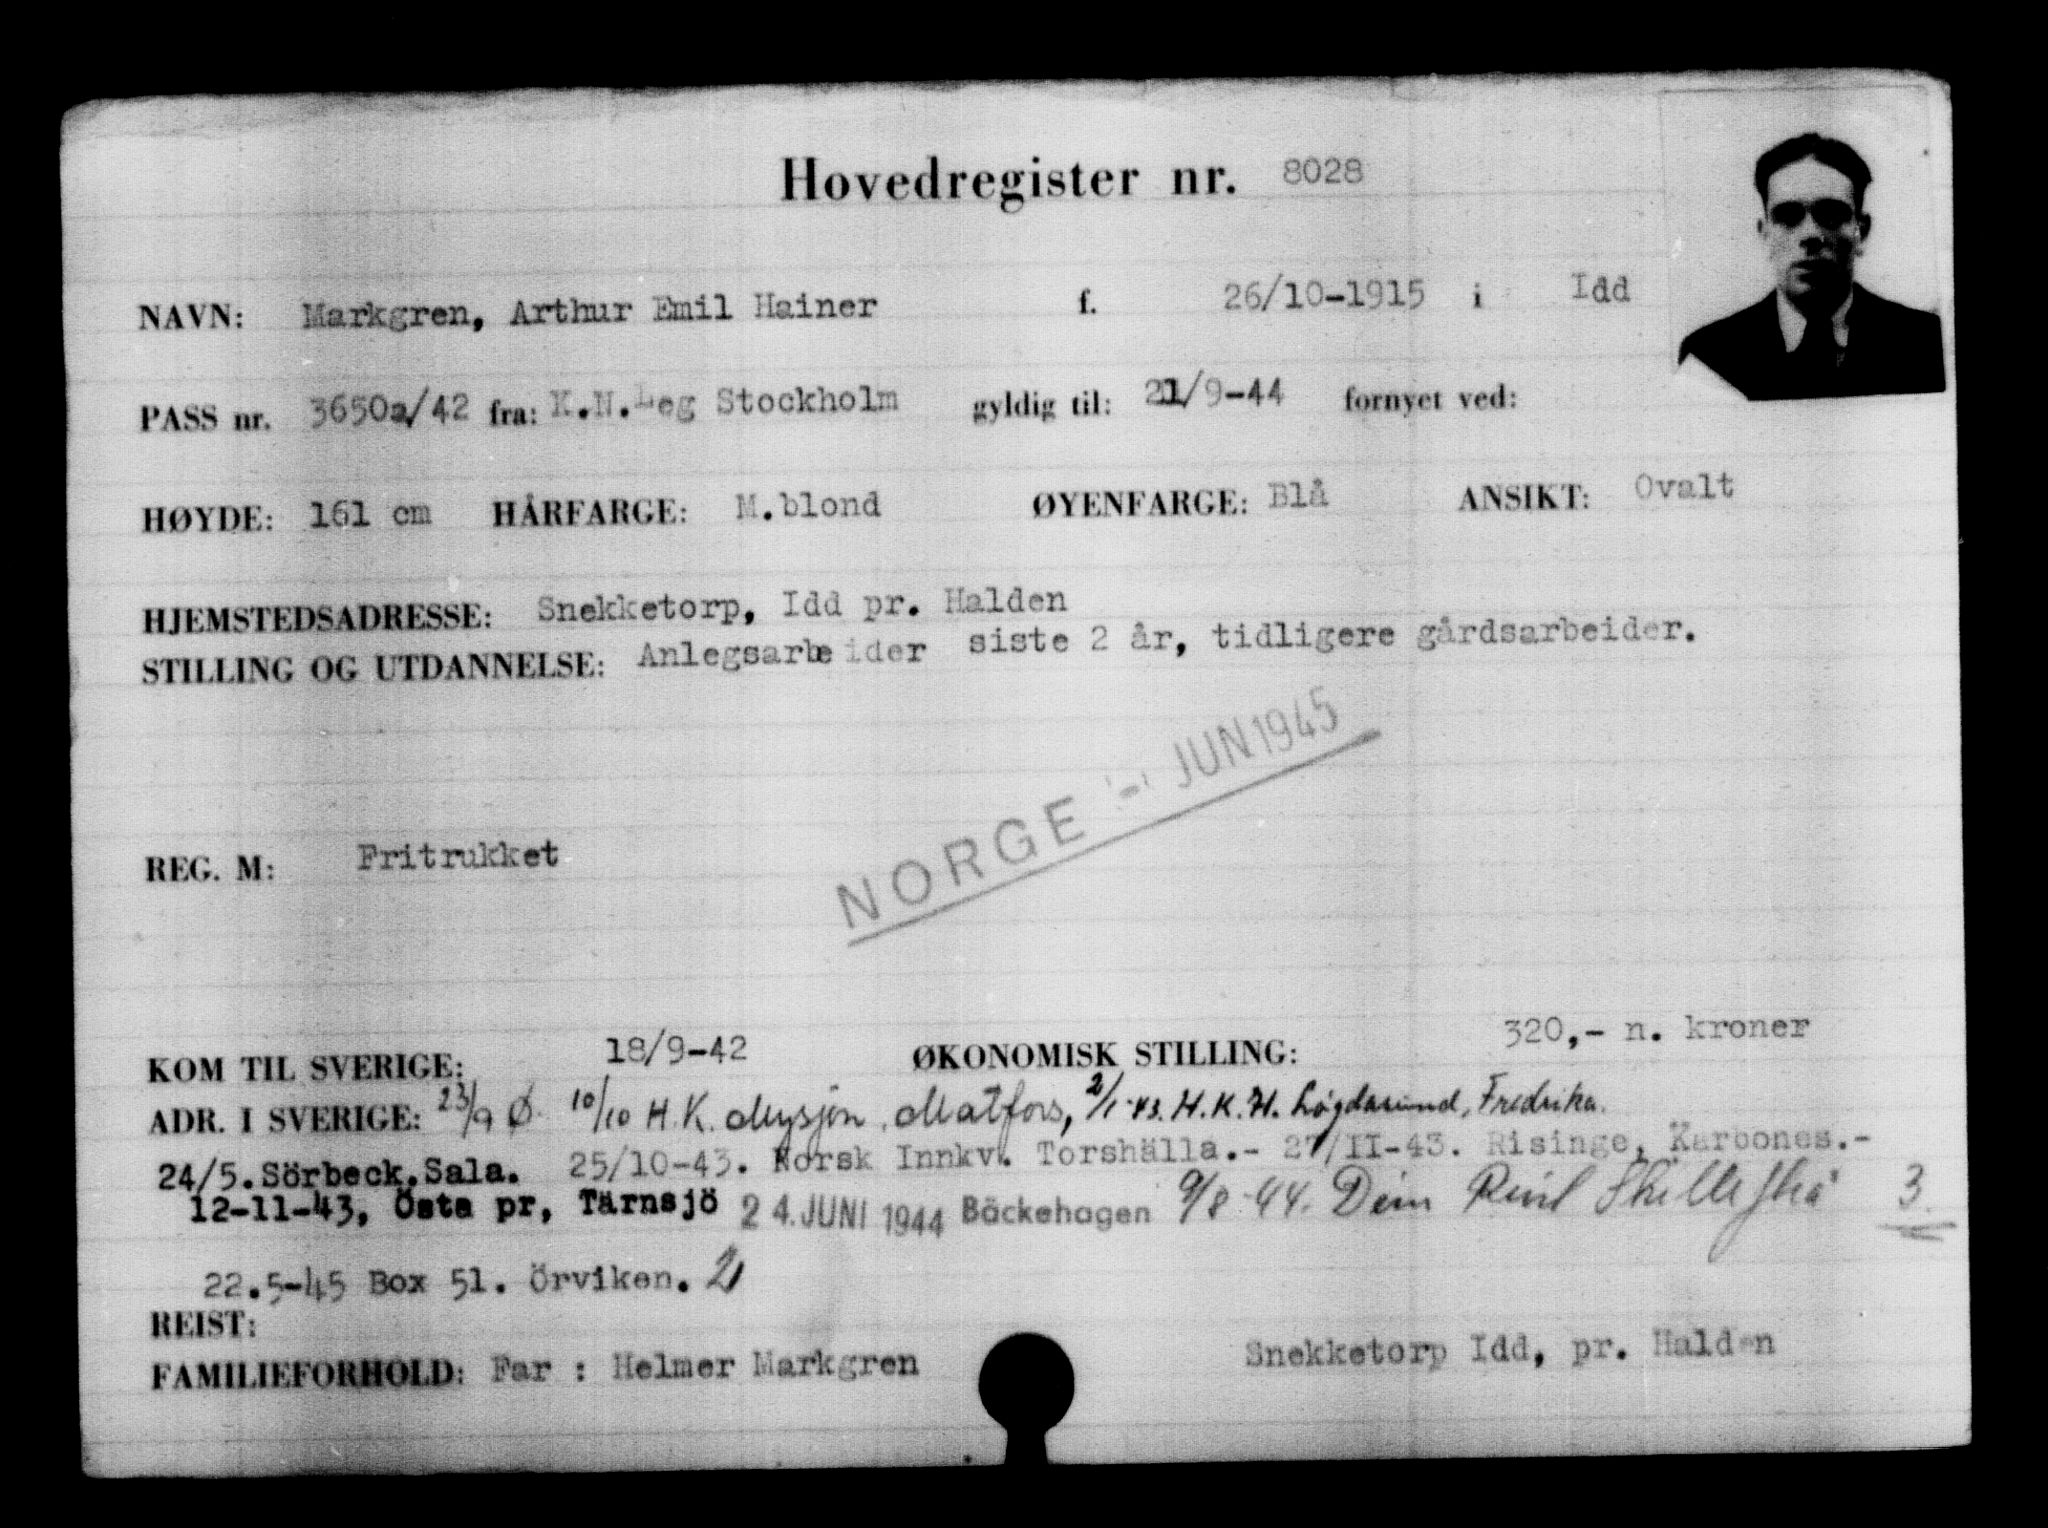 Hovedregister nr. 8028
NAVN: Markgren, Arthur Emil Hainer f. 26/10-1915 i Idd
PASS nr. 3650a/42 fra: K.N.Leg Stockholm gyldig til: 21/9-44 fornyet ved:
HØYDE: 161 cm HÅRFARGE: M.blond ØYENFARGE: Blå ANSIKT: Ovalt
HJEMSTEDSADRESSE: Snekketorp, Idd pr. Halden
STILLING OG UTDANNELSE: Anlegsarbeider siste 2 år, tidligere gårdsarbeider.
NORGE - JUN 1945
REG. M: Fritrukket
KOM TIL SVERIGE: 18/9-42 ØKONOMISK STILLING: 320,- n. kroner
ADR. I SVERIGE: 23/9 Ø. 10/10 H.K. Mysjön, Matfors, 2/1-43. H.K.H. Lögdasund, Fredrika.
24/5. Sörbeck, Sala. 25/10-43. Norsk Innkv. Torshälla.- 27/II-43. Risinge, Karbones.-
12-11-43, Östa pr, Tärnsjö 24. JUNI 1944 Bäckehagen 9/8-44. 3
22.5-45 Box 51. Örviken. 21
REIST:
FAMILIEFORHOLD: Far : Helmer Markgren Snekketorp Idd, pr. Halden